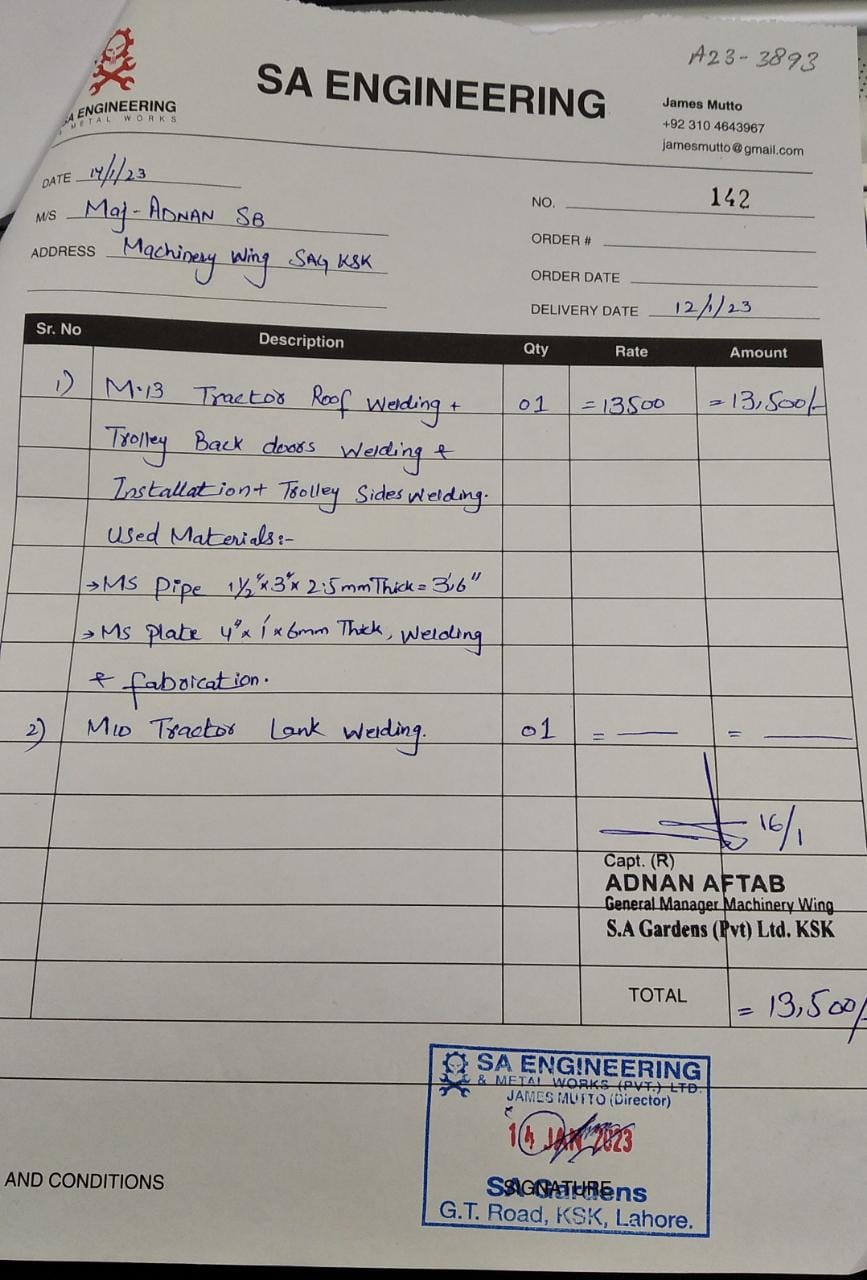 A23-3893
SA ENGINEERING
METAL WORKS
SA ENGINEERING
James Mutto
+92 310 4643967
jamesmutto@gmail.com
DATE 14/1/23
NO. 142
M/S Maj-ADNAN SB
ORDER #
ADDRESS Machinery Wing SAG KSK
ORDER DATE
DELIVERY DATE 12/1/23
Sr. No Description Qty Rate Amount
1) M-13 Tractor Roof Welding + 01 =13500 =13,500/-
Trolley Back doors Welding &
Installation+ Trolley Sides Welding.
Used Materials:-
→MS Pipe 1½"x3"x 2.5mm Thick= 3'6"
→MS Plate 4"x1'x6mm Thick, Welding
& fabrication.
2) M10 Tractor Lank Welding. 01 = — = —
16/1
Capt. (R)
ADNAN AFTAB
General Manager Machinery Wing
S.A Gardens (Pvt) Ltd. KSK
TOTAL = 13,500/
SA ENGINEERING
& METAL WORKS (PVT.) LTD.
JAMES MUTTO (Director)
14 JAN 2023
SIGNATURE
SA Gardens
G.T. Road, KSK, Lahore.
AND CONDITIONS